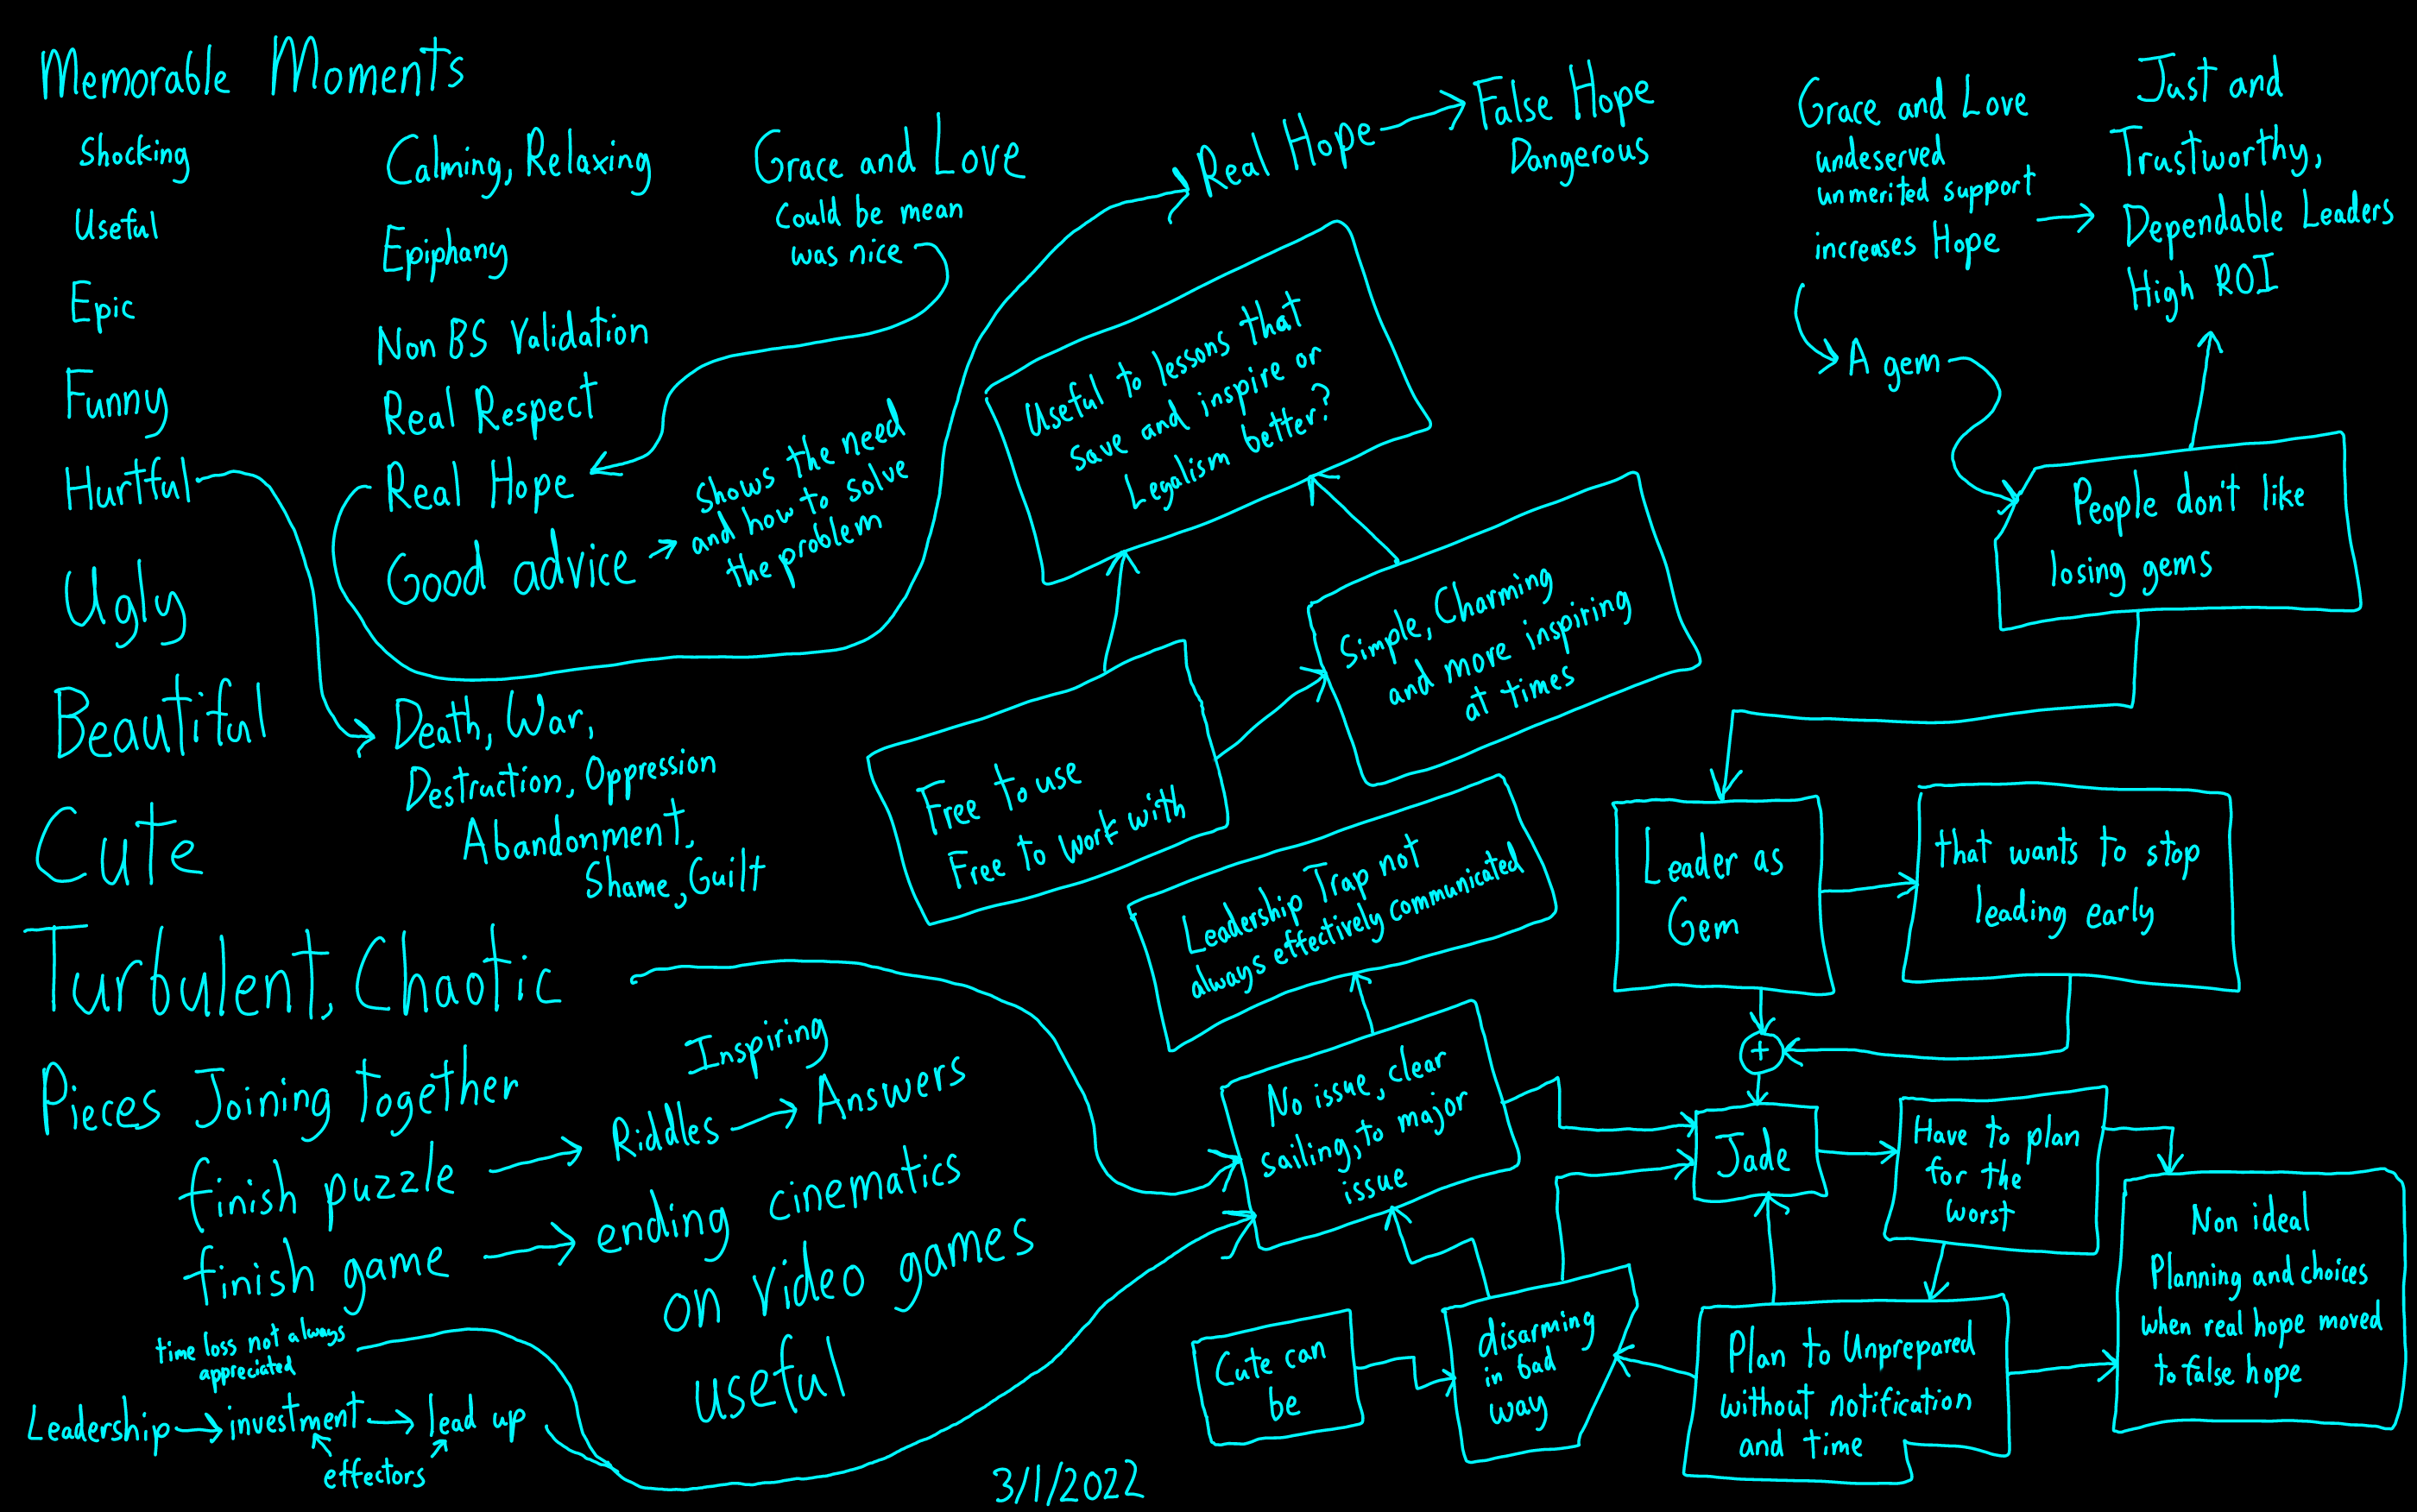 Memorable Moments
Shocking
Useful
Epic
Funny
Hurtful
Ugly
Beautiful
Cute
Turbulent, Chaotic
Pieces Joining together
finish puzzle
finish game
time loss not always
appreciated
Leadership
investment
lead up
effectors
Calming, Relaxing
Epiphany
Non BS Validation
Real Respect
Real Hope
Good advice
Shows the need
and how to solve
the problem
Death, War,
Destruction, Oppression
Abandonment,
Shame, Guilt
Inspiring
Riddles
Answers
ending cinematics
on video games
useful
Grace and Love
Could be mean
was nice
Real Hope
False Hope
Dangerous
Useful to lessons that
save and inspire or
Legalism better?
Simple, Charming
and more inspiring
at times
Free to use
Free to work with
Leadership Trap not
always effectively communicated
No issue, clear
sailing, to major
issue
Cute can
be
disarming
in bad
way
3/1/2022
Grace and Love
undeserved
unmerited support
increases Hope
A gem
Just and
Trustworthy,
Dependable Leaders
High ROI
People don't like
losing gems
Leader as
Gem
that wants to stop
leading early
+
Jade
Have to plan
for the
worst
Plan to Unprepared
without notification
and time
Non ideal
Planning and choices
when real hope moved
to false hope